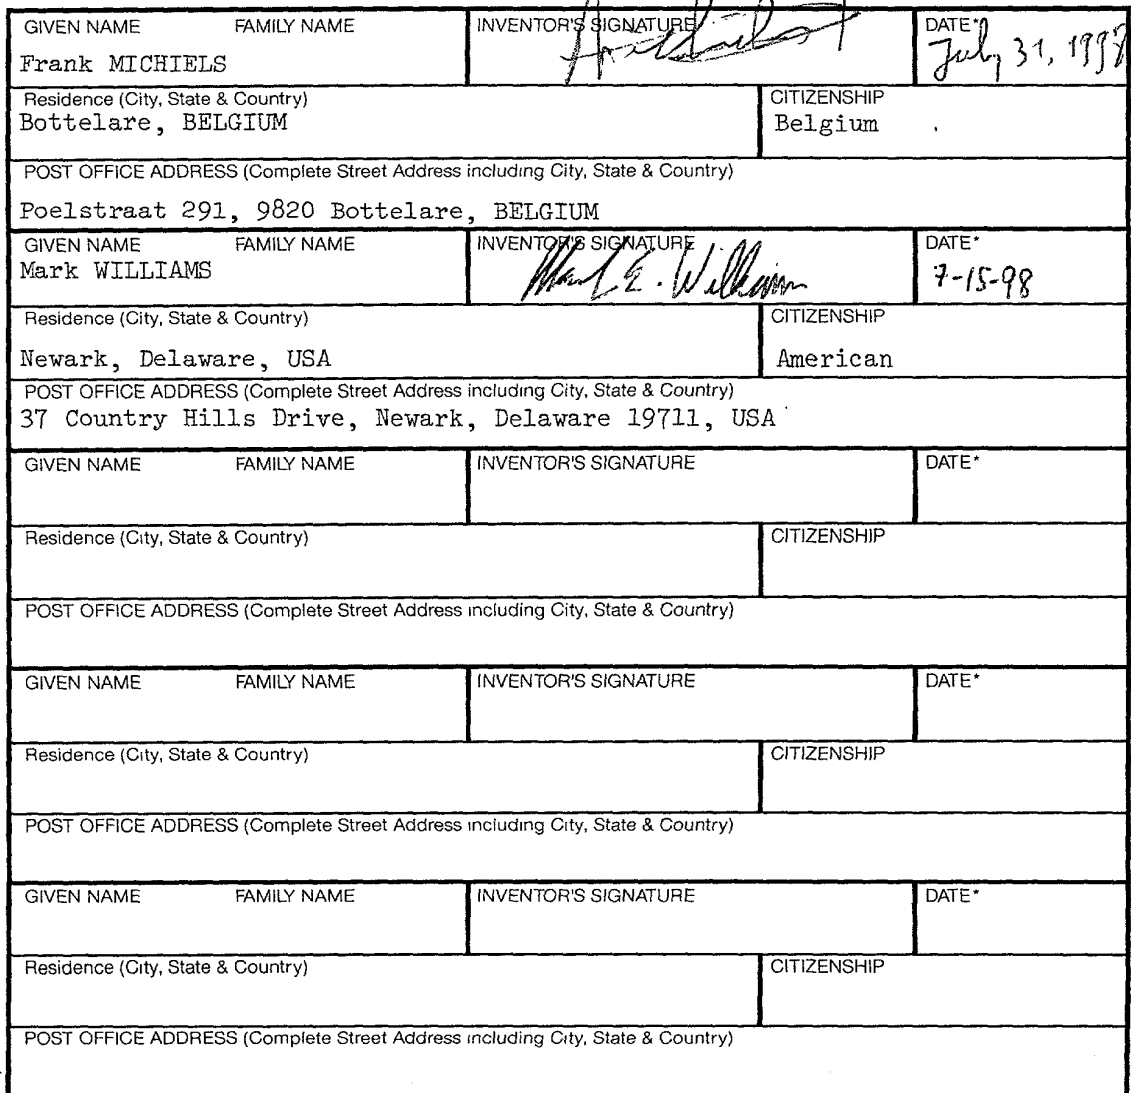 GIVEN NAME FAMILY NAME INVENTOR'S SIGNATURE DATE*
Frank MICHIELS July 31, 1997
Residence (City, State & Country) CITIZENSHIP
Bottelare, BELGIUM Belgium
POST OFFICE ADDRESS (Complete Street Address including City, State & Country)
Poelstraat 291, 9820 Bottelare, BELGIUM
GIVEN NAME FAMILY NAME INVENTOR'S SIGNATURE DATE*
Mark WILLIAMS Mark E. Williams 7-15-98
Residence (City, State & Country) CITIZENSHIP
Newark, Delaware, USA American
POST OFFICE ADDRESS (Complete Street Address including City, State & Country)
37 Country Hills Drive, Newark, Delaware 19711, USA
GIVEN NAME FAMILY NAME INVENTOR'S SIGNATURE DATE*
Residence (City, State & Country) CITIZENSHIP
POST OFFICE ADDRESS (Complete Street Address including City, State & Country)
GIVEN NAME FAMILY NAME INVENTOR'S SIGNATURE DATE*
Residence (City, State & Country) CITIZENSHIP
POST OFFICE ADDRESS (Complete Street Address including City, State & Country)
GIVEN NAME FAMILY NAME INVENTOR'S SIGNATURE DATE*
Residence (City, State & Country) CITIZENSHIP
POST OFFICE ADDRESS (Complete Street Address including City, State & Country)